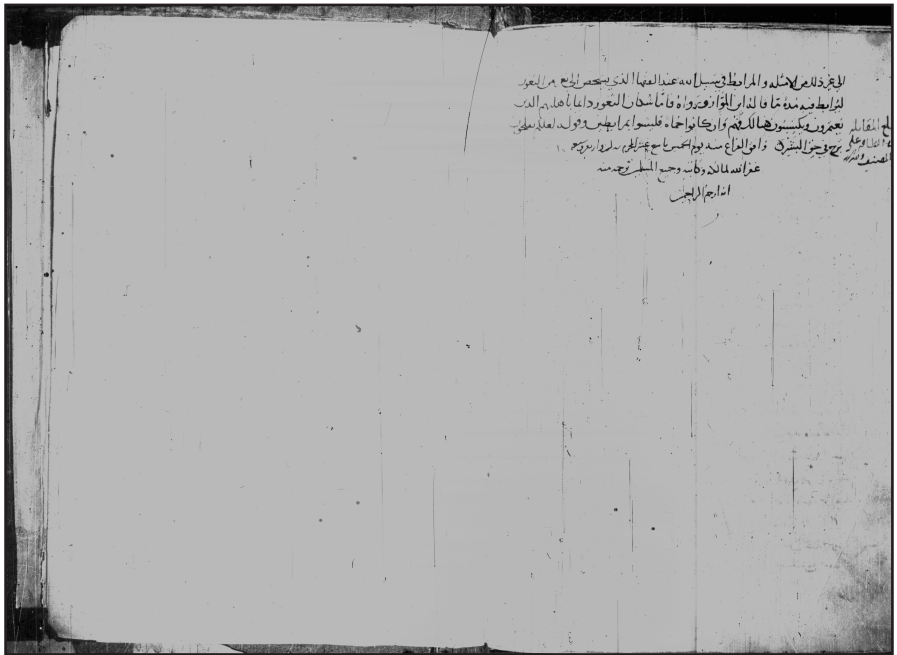 الى غير ذلك من الامثلة والمرابط في سبيل الله عند الفقها الذي يشخص الى ثغر من الثغور
ليرابط فيه مدة ما قاله ابن المواز ورواه فاما سكان الثغور دايما باهليهم الذين
يعمرون ويكتسبون هنالك فهم وان كانوا حماه فليسوا بمرابطين وقوله لعلكم تفلحون
ترج في حق البشر وافق الفراغ منه يوم الخميس تاسع
غفر الله لمالكه وكاتبه وجميع المسلمين
انه ارحم الراحمين
بلغ المقابلة